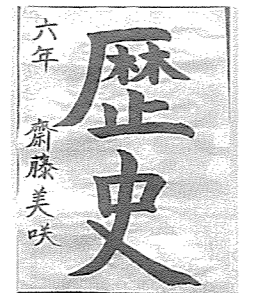 歴史
六年 齋藤美咲